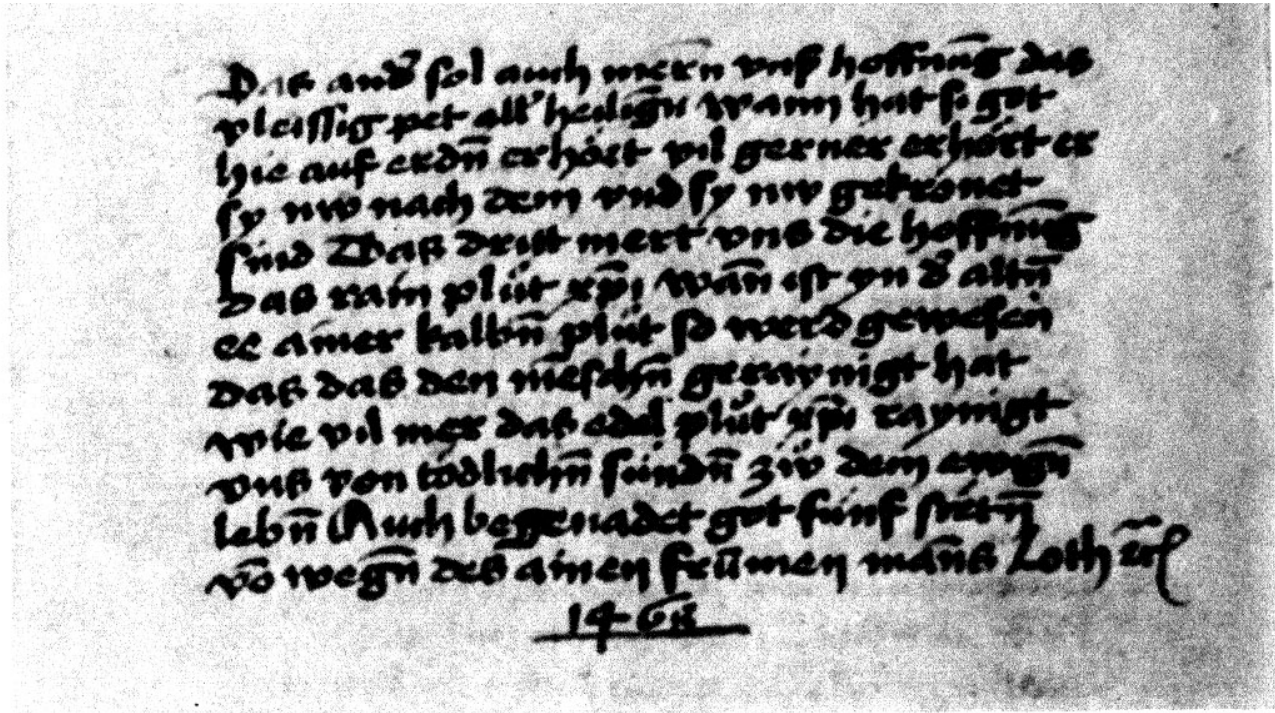 Das and̛ sol auch mern̄ vnß hoffnūg das
vleissig pet all̛ heilign̄ wann hat si got
hie auf erdn̄ erhört vil gerner erhört er
sy nw nach dem vnd sy nw gekrönet
sind Das dritt mert vns die hoffnūg
das rain plüt xp̄i wān ist yn d̛ altn̄
ee ainer kalbn̄ plüt so werd gewesen
das das den mēschn̄ geraynigt hat
wie vil mer das edel plüt xp̄i raynigt
vns von tödlichn̄ sündn̄ zw̋ dem ewign̄
lebn̄ Auch begenadet got fünf stetn̄
vō wegn̄ des ainen frūmen mān̄s Loth